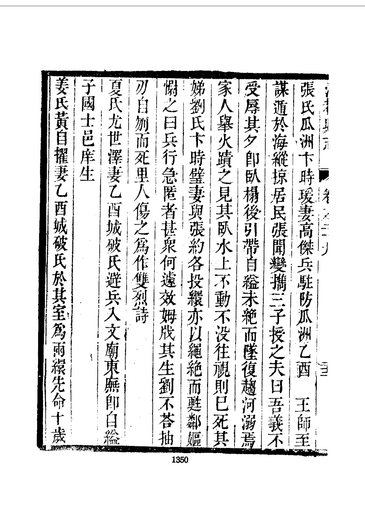 張氏瓜洲卞時瑗妻高傑兵駐防瓜洲乙酉　王師至
謀遁於海縱掠居民張聞變攜三子授之夫曰吾義不
受辱其夕卽臥榻後引帶自縊未絶而墜復趨河溺焉
家人舉火蹟之見其臥水上不動不没往視則已死其
娣劉氏卞時璧妻與張約各投繯亦以繩絶而甦鄰嫗
慰之曰兵行急匿者甚衆何遽效姆戕其生劉不荅抽
刃自刎而死里人傷之爲作雙烈詩
夏氏尤世澤妻乙酉城破氏避兵入文廟東廡卽自縊
子國士邑庠生
姜氏黃自擢妻乙酉城破氏於其室爲兩繯先命十歲
1350